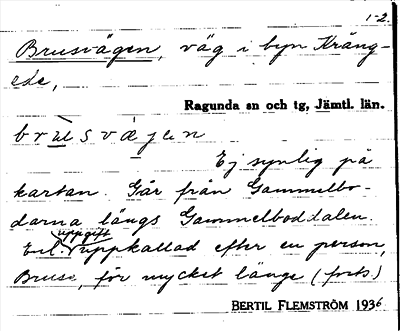 1-2
Brusvägen, väg i byn Kräng-
ede,
Ragunda sn och tg, Jämtl. län.
Ej synlig på
kartan. Går från Gammelbo-
darna längs Gammelboddalen.
Enl. uppgift uppkallad efter en person,
Bruse, för mycket länge (forts.)
BERTIL FLEMSTRÖM 1936